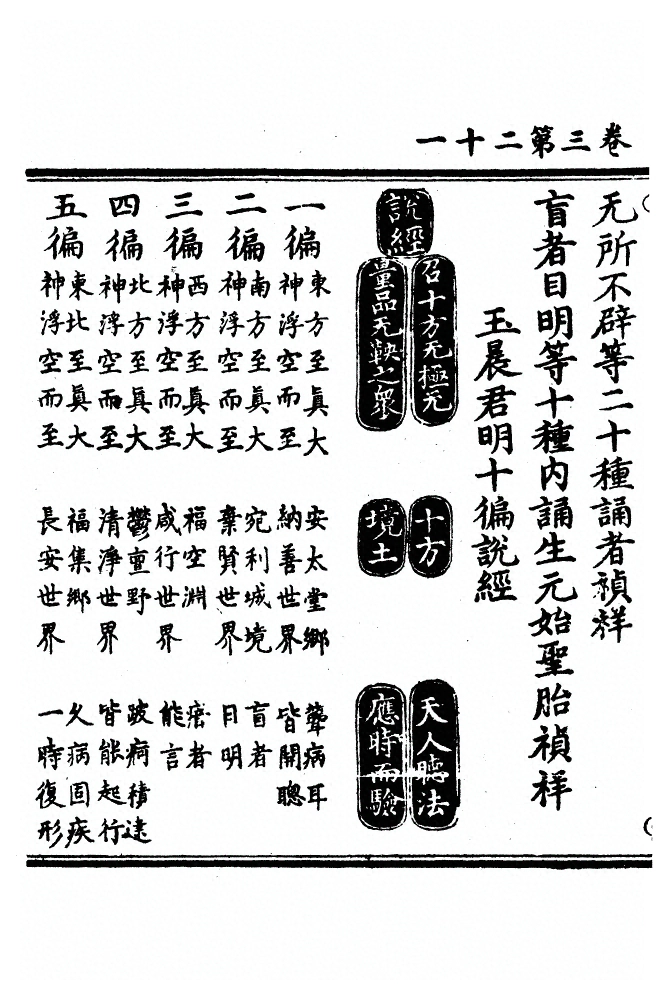 卷三第二十一
无所不辟等二十種誦者禎祥
盲者目明等十種内誦生元始聖胎禎祥
玉晨君明十徧説經
説經
召十方无極无
量品无鞅之衆
十方
境土
天人聽法
應時而驗
一徧
東方至眞大
神浮空而至
安太堂鄉
納善世界
聾病耳
皆開聰
二徧
南方至眞大
神浮空而至
宛利城境
棄賢世界
盲者
目明
三徧
西方至眞大
神浮空而至
福空淵
咸行世界
瘖者
能言
四徧
北方至眞大
神浮空而至
鬱重野
清淨世界
跛痾積逮
皆能起行
五徧
東北至眞大
神浮空而至
福集鄉
長安世界
久病固疾
一時復形